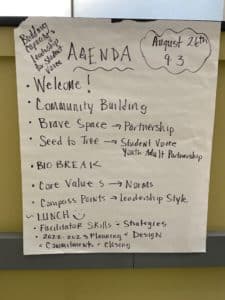 Building
capacity &
leadership
for student
voice
AGENDA
August 26th
9-3
• Welcome!
• Community Building
• Brave Space → Partnership
• Seed to Tree → Student Voice
Youth Adult Partnership
• BIO BREAK
• Core Values → Norms
• Compass Points → Leadership Style
~ LUNCH
• Facilitator Skills + Strategies
• 2022-2023 Planning + Design
• Commitments + Closing